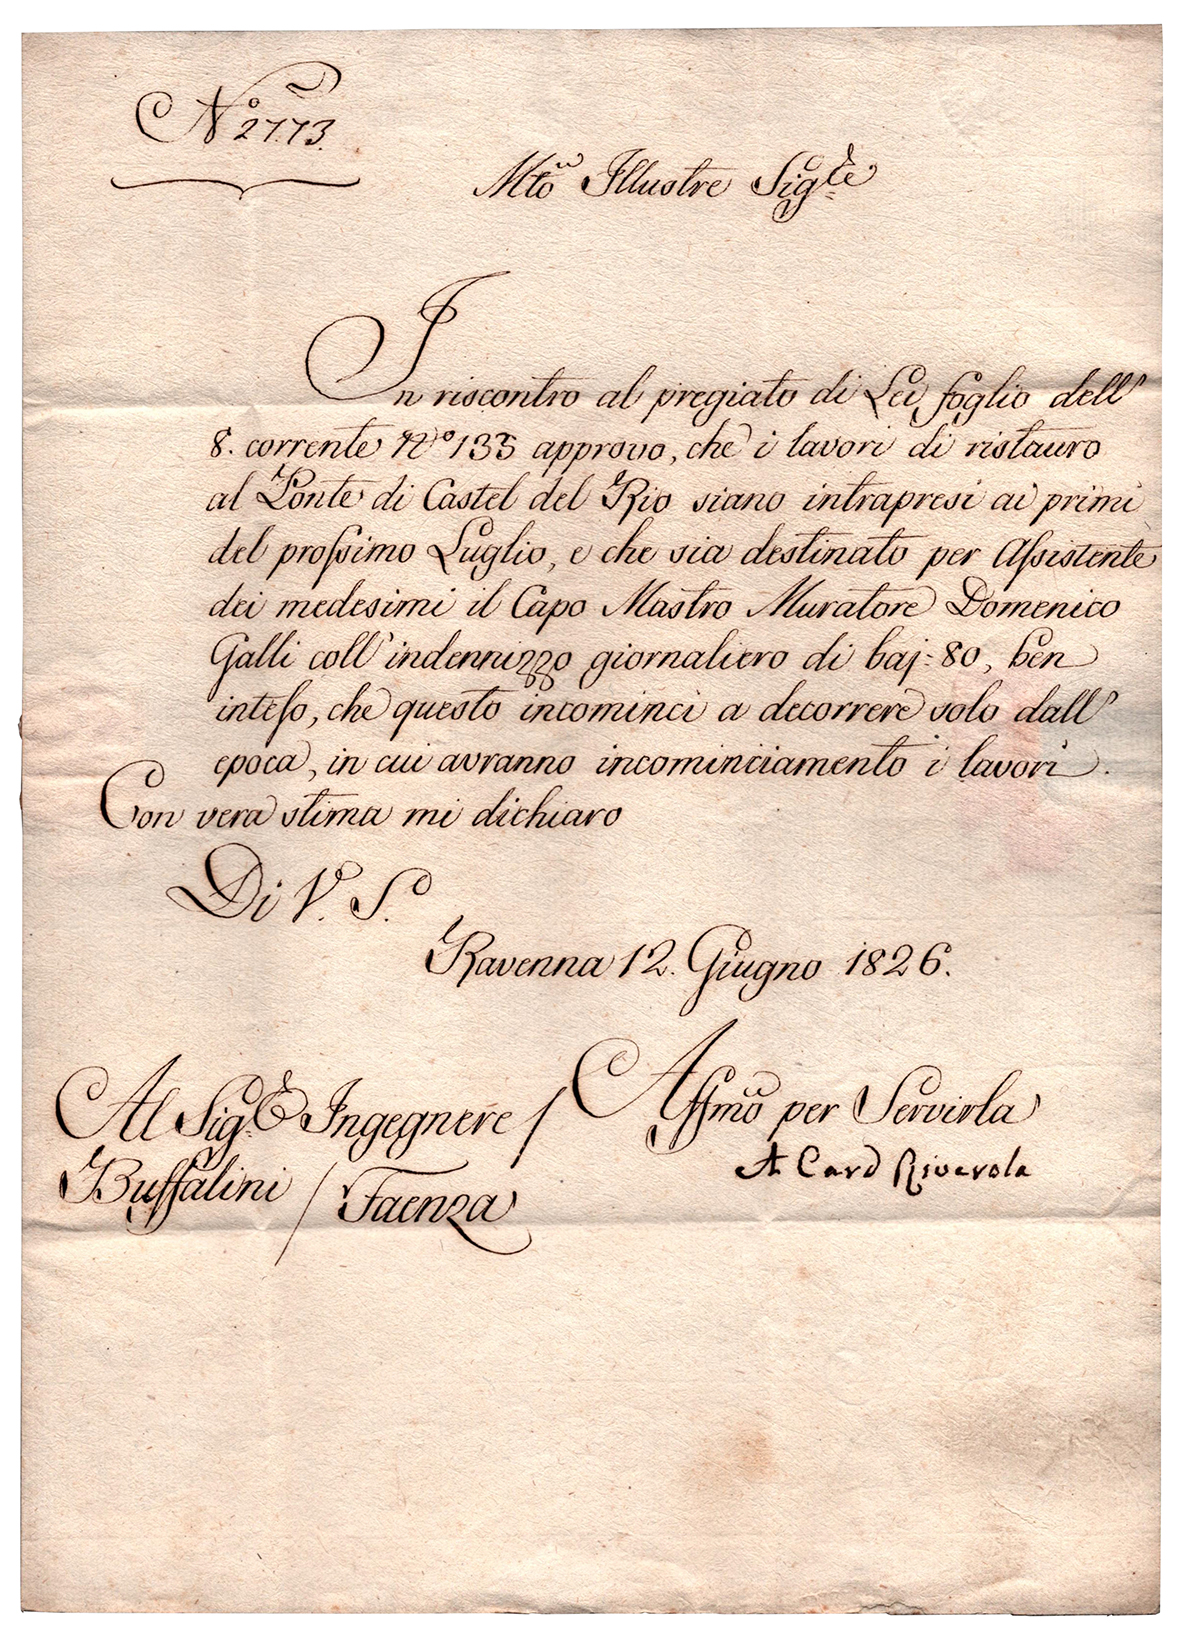 N.º 2773.
Mto Illustre Sigre
In riscontro al pregiato di Lei foglio dell'
8. corrente Nº 133 approvo, che i lavori di ristauro
al Ponte di Castel del Rio siano intrapresi ai primi
del prossimo Luglio, e che sia destinato per Assistente
dei medesimi il Capo Mastro Muratore Domenico
Galli coll'indennizzo giornaliero di baj: 80, ben
inteso, che questo incominci a decorrere solo dall'
epoca, in cui avranno incominciamento i lavori.
Con vera stima mi dichiaro
Di V. S.
Ravenna 12. Giugno 1826.
Al Sigre Ingegnere /
Buffalini / Faenza
Affmo per Servirla
A Card Rivarola